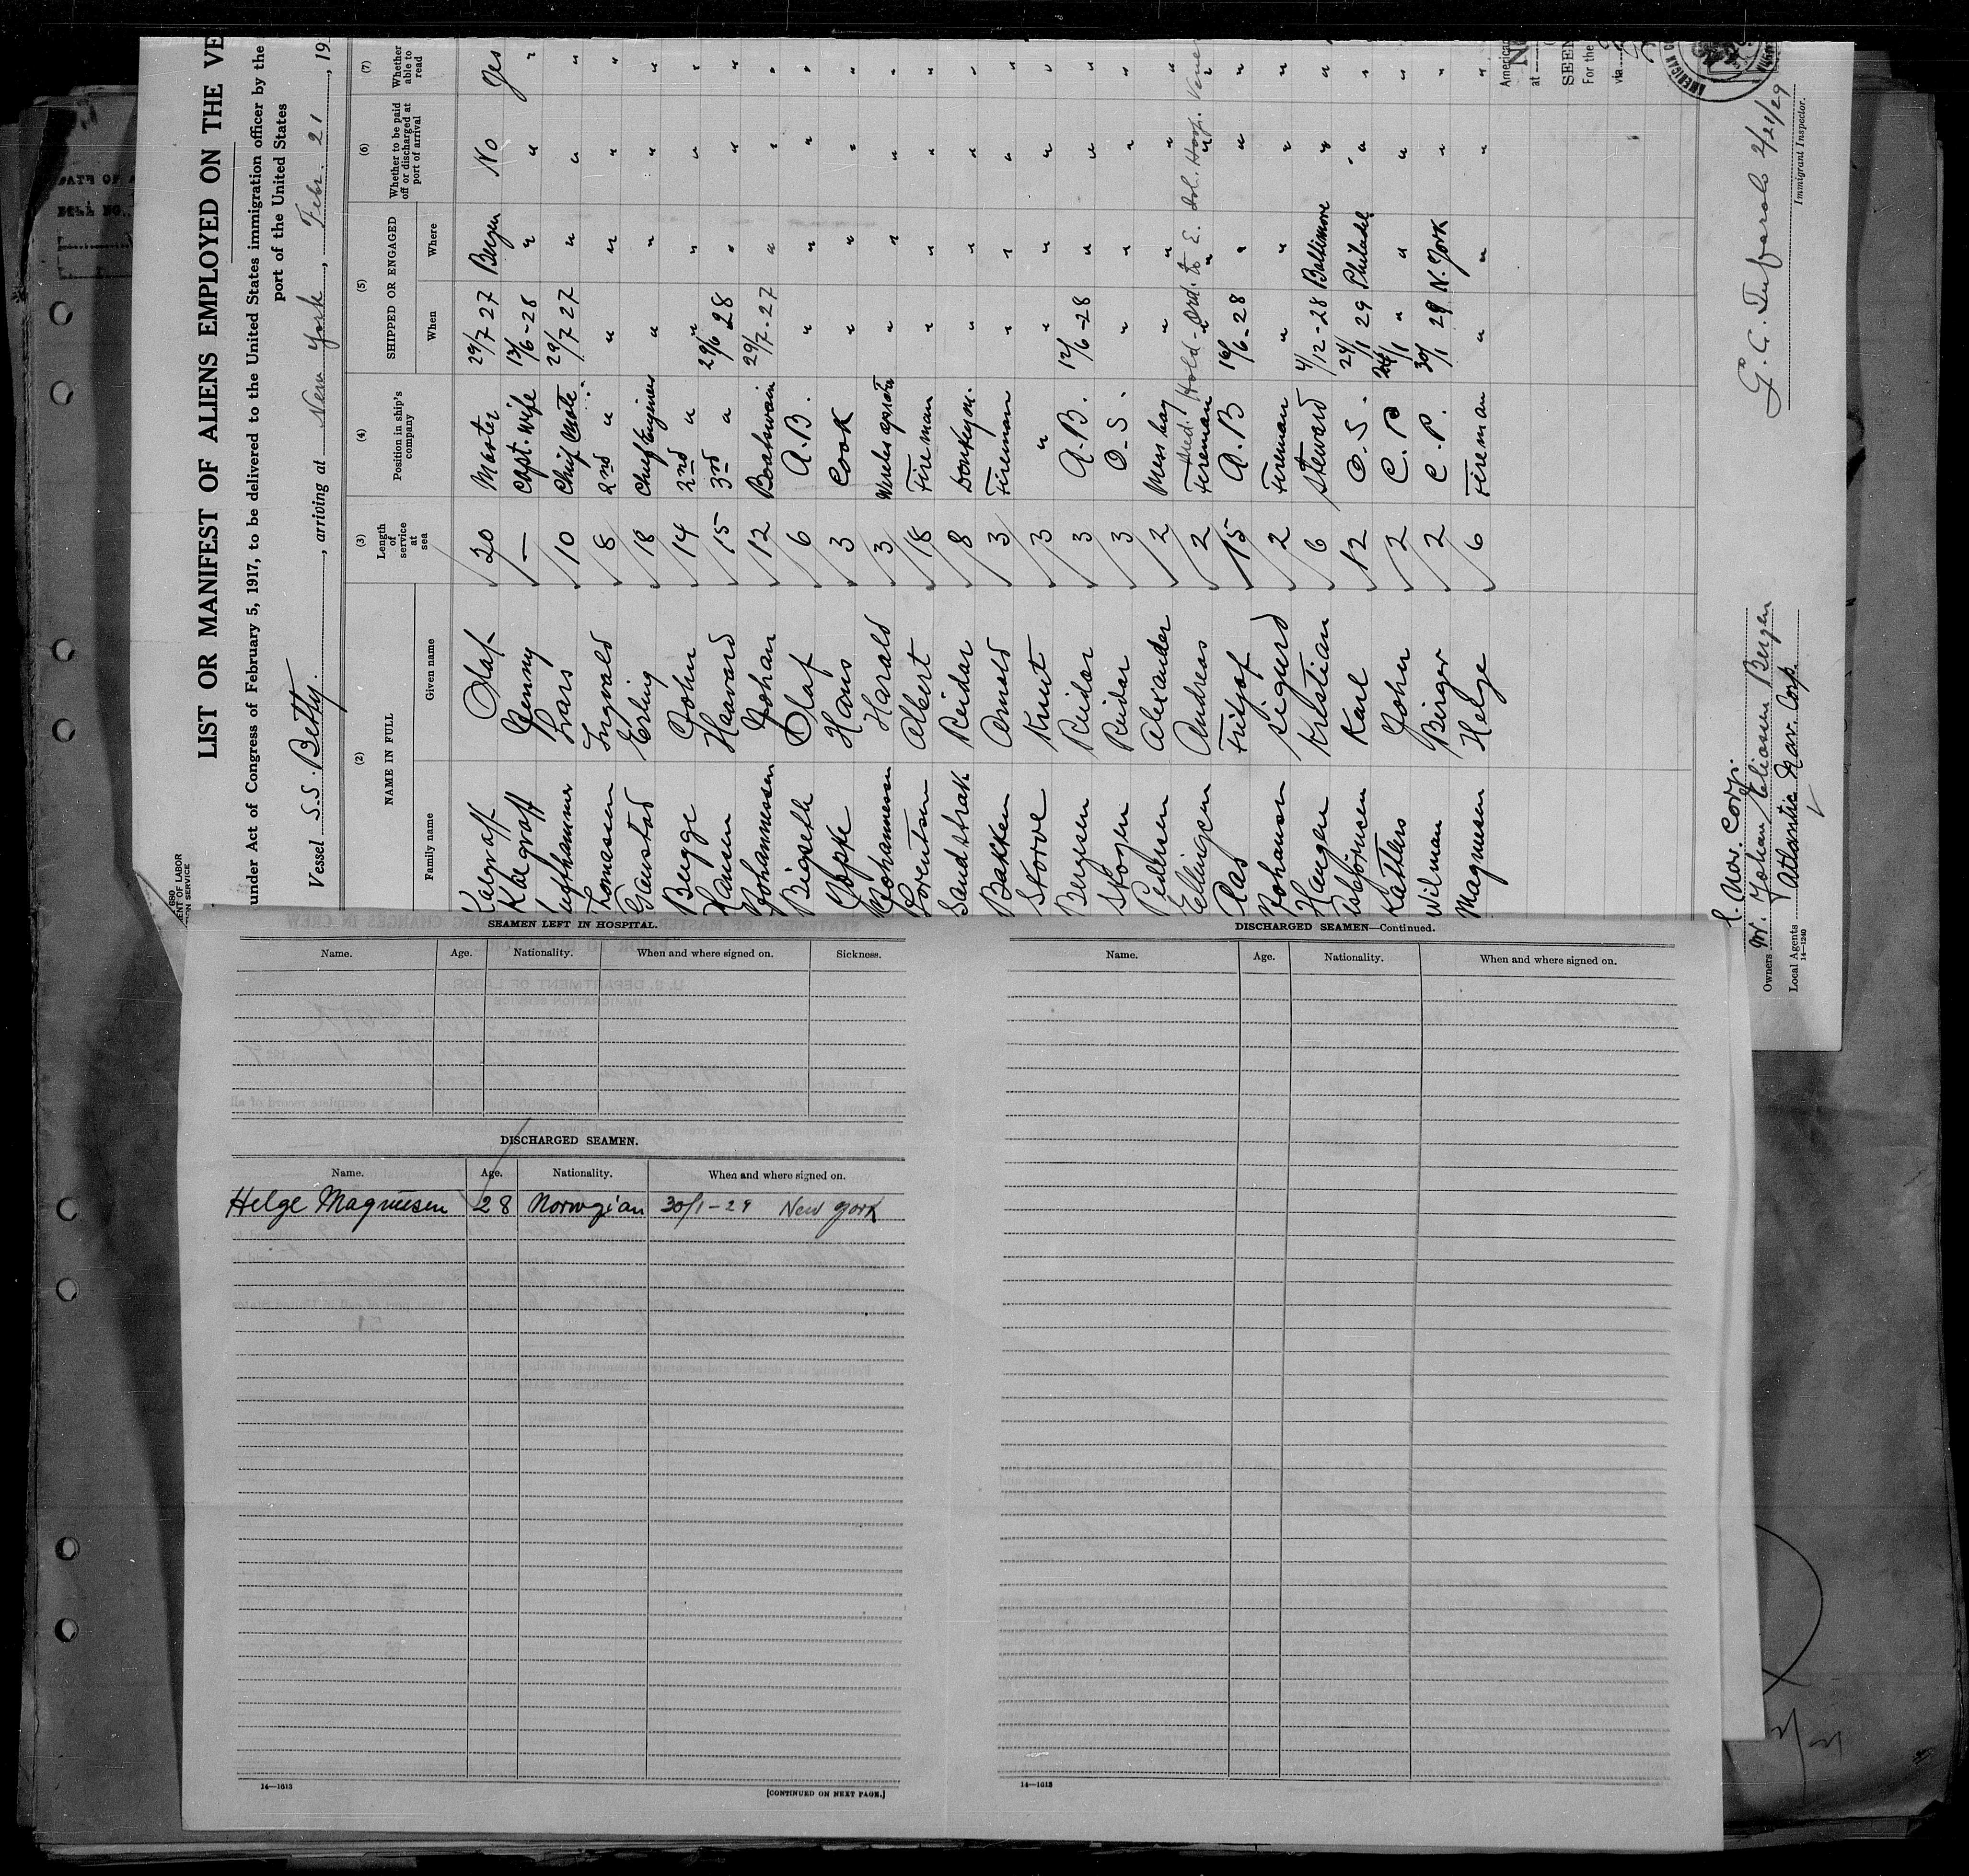 LIST OR MANIFEST OF ALIENS EMPLOYED ON THE VE
under Act of Congress of February 5, 1917, to be delivered to the United States immigration officer by the
port of the United States
Vessel S.S. Betty., arriving at New York, Febr. 21, 19
(2) (3) (4) (5) (6) (7)
NAME IN FULL Length of service at sea Position in ship's company SHIPPED OR ENGAGED Whether to be paid off or discharged at port of arrival Whether able to read
Family name Given name When Where
Kalgraff Olaf 20 Master 29/7 27 Bergen No Yes
Kalgraff Jenny — Capt. Wife 13/6-28 " " "
Lars 10 Chief Mate 29/7 27 " " "
Tomassen Ingvald 8 2nd " " " " "
Gaustad Erling 18 Chief Engineer " " " "
Begge John 14 2nd " " " " "
Hansen Haavard 15 3rd " 29/6 28 " " "
Johannessen Johan 12 Boatswain 29/7-27 " " "
Bigseth Olaf 6 A.B. " " " "
Joppe Hans 3 Cook " " " "
Johannessen Harald 3 " " " "
Lorentsen Albert 18 Fireman " " " "
Sandstrak Reidar 8 Donkeym. " " " "
Bakken Arnold 3 Fireman " " " "
Storve Knut 3 " " " " "
Bergesen Reidar 3 A.B. 12/6-28 " " "
Skogen Reidar 3 O.S. " " " "
Pedersen Alexander 2 Mess boy " " " "
Hold - Ord. to E. Isl. Hosp.
Ellingsen Andreas 2 Fireman " " " "
Aas Fritjof 15 A.B 16/6-28 " " "
Johansen Sigurd 2 Fireman " " " "
Haugen Kristian 6 Steward 4/12-28 Baltimore " "
Asbjörnsen Karl 12 O.S. 24/1 29 Philadel. " "
Kattlers John 2 C.P 24/1 " " " "
Wilman Birger 2 C.P. 30/1 29 N. York " "
Magnusen Helge 6 Fireman " " " "
American
at
SEEN
For the
via
AMERICAN CO
G. C. Tufarolo 2/21/29
Immigrant Inspector.
Owners Mr. Johan Eliasen Bergen
Local Agents Atlantic Nav. Corp.
14—1240
SEAMEN LEFT IN HOSPITAL.
Name. Age. Nationality. When and where signed on. Sickness.
DISCHARGED SEAMEN.
Name. Age. Nationality. When and where signed on.
Helge Magnusen 28 Norwgian 30/1-29 New York
14—1613
[CONTINUED ON NEXT PAGE.]
DISCHARGED SEAMEN—Continued.
Name. Age. Nationality. When and where signed on.
14—1613